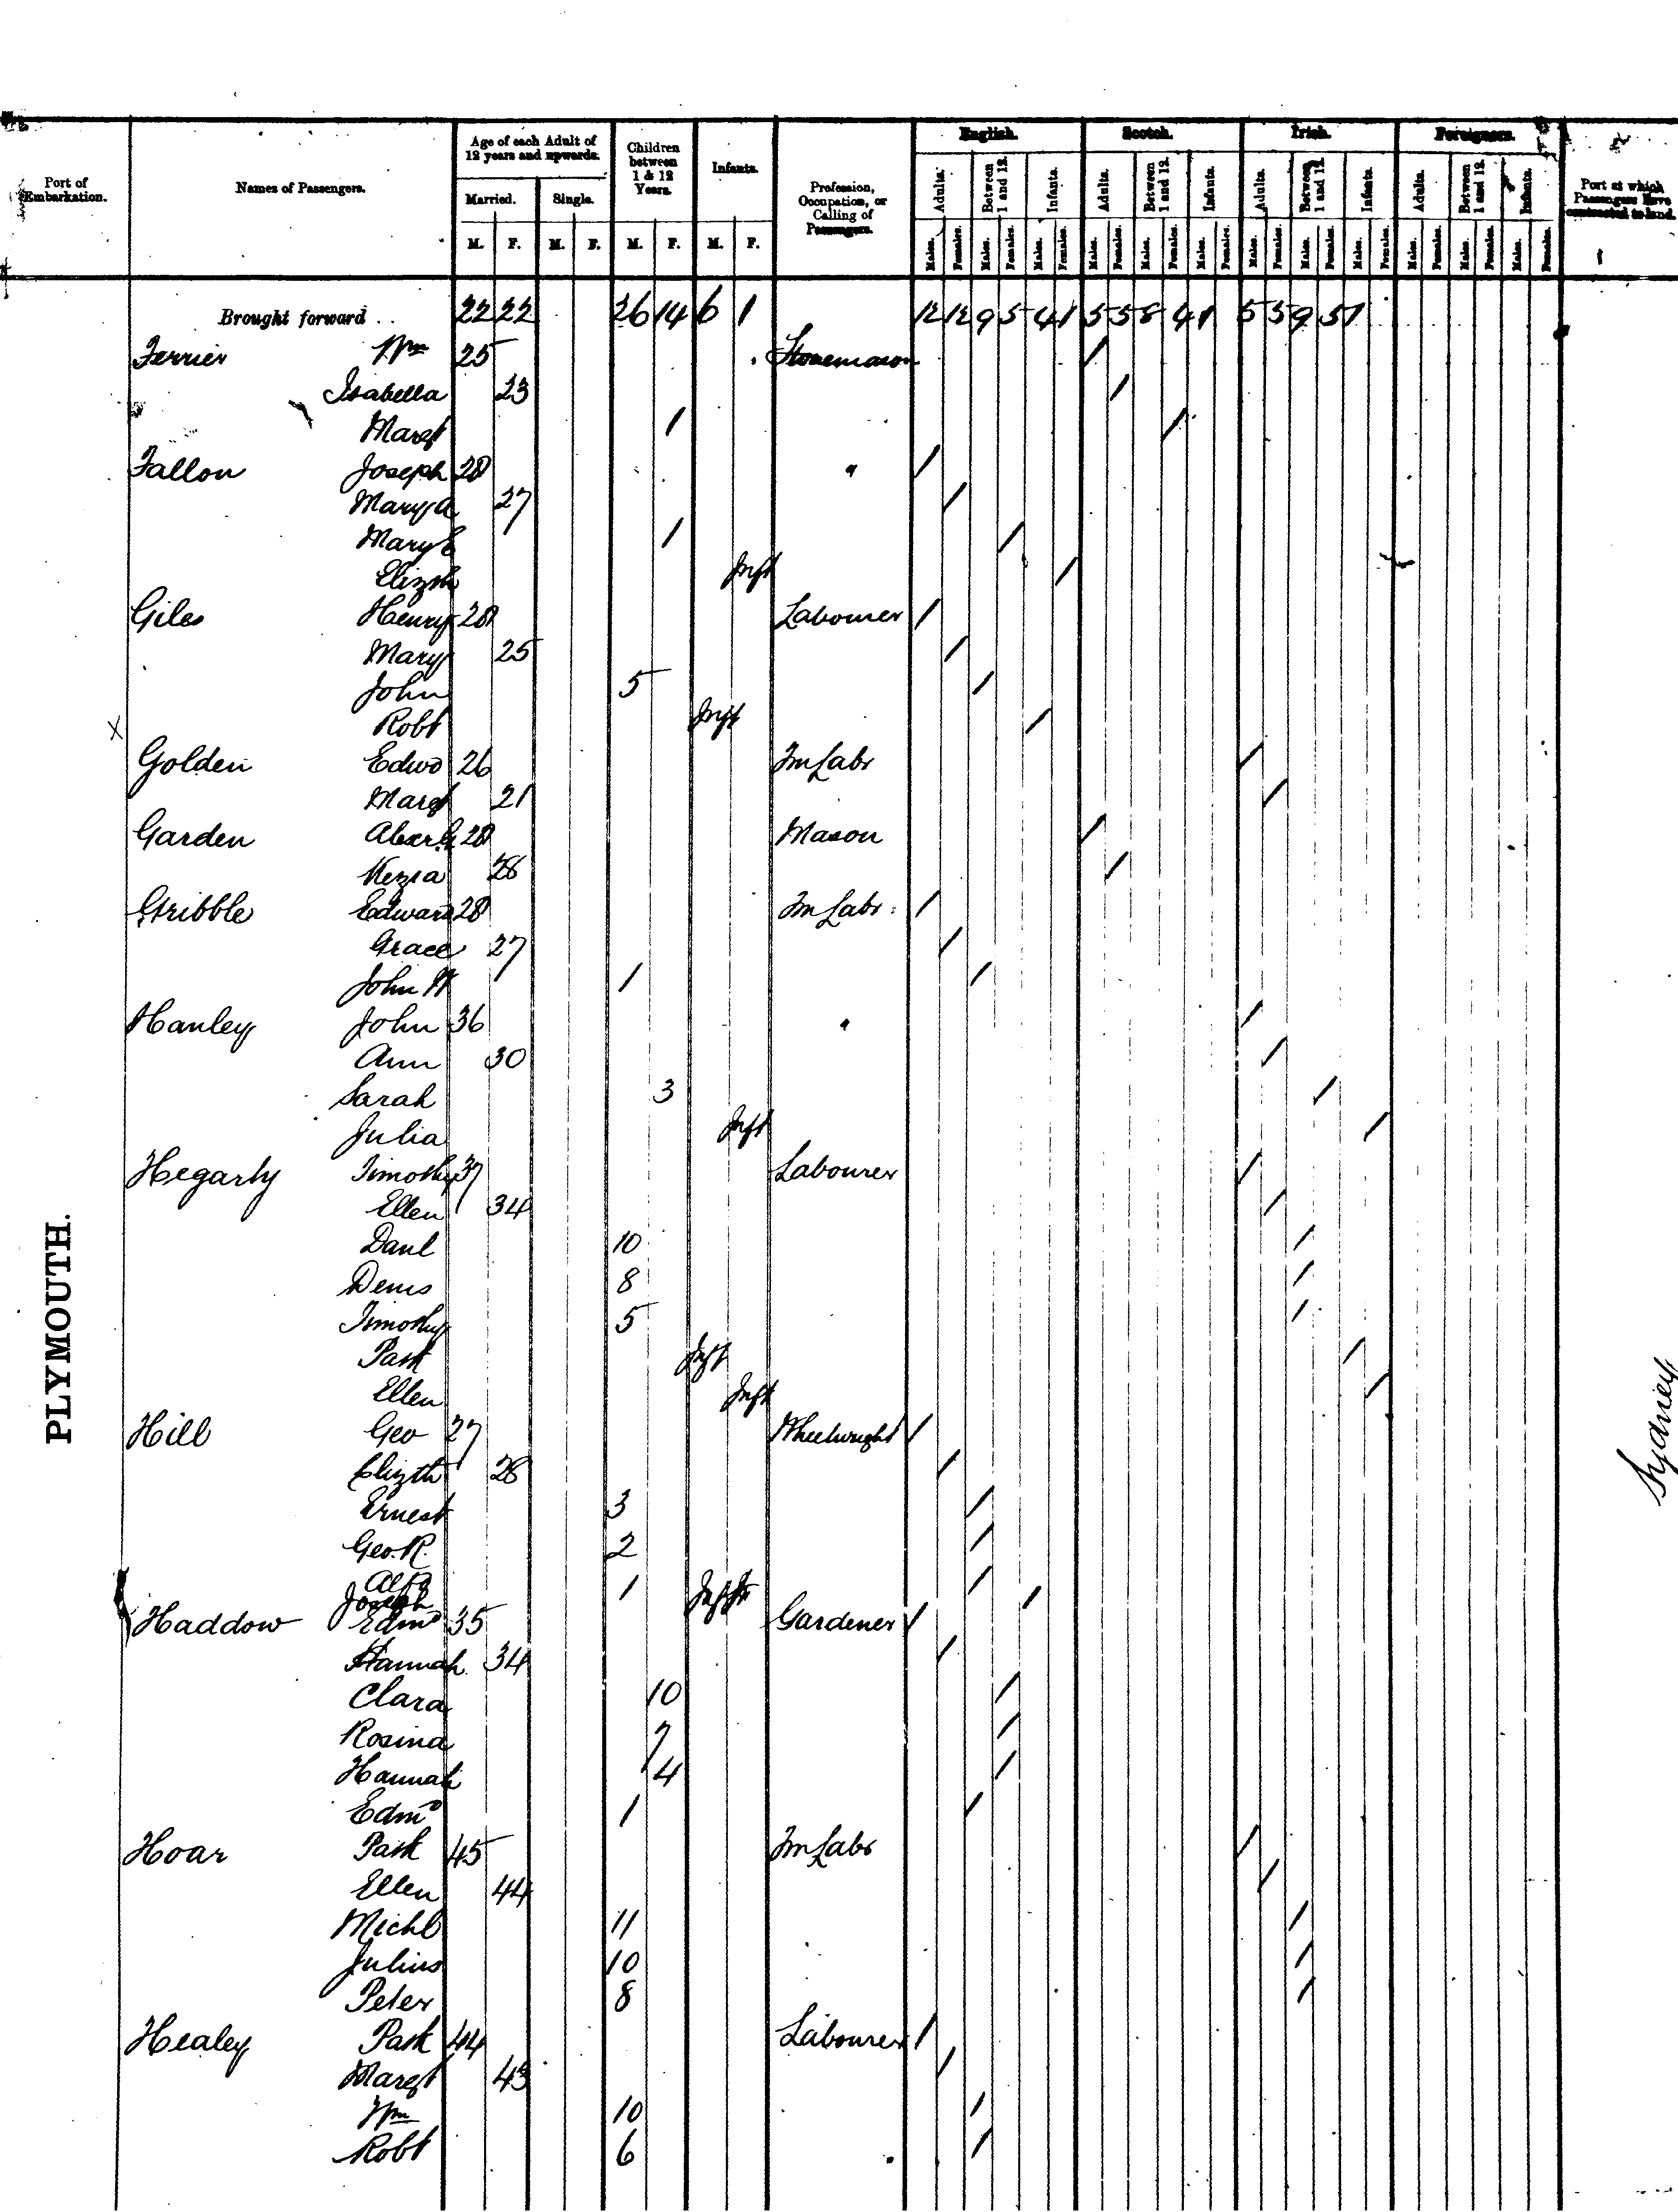 Port of Embarkation.
Names of Passengers.
Age of each Adult of 12 years and upwards.
Married. Single.
M. F. M. F.
Children between 1 & 12 Years.
M. F.
Infants.
M. F.
Profession, Occupation, or Calling of Passengers.
English. Scotch. Irish. Foreigners.
Adults. Between 1 and 12. Infants. Adults. Between 1 and 12. Infants. Adults. Between 1 and 12. Infants. Adults. Between 1 and 12. Infants.
Males. Females. Males. Females. Males. Females. Males. Females. Males. Females. Males. Females. Males. Females. Males. Females. Males. Females. Males. Females. Males. Females. Males. Females.
Port at which Passengers have contracted to land.
Brought forward .. 22 22 26 14 6 1 12 12 9 5 4 1 5 5 8 4 1 5 5 9 5 1
Ferrier Wm 25 Stonemason /
Isabella 23 /
Margt 1 /
Fallon Joseph 28 " /
Mary A 27 /
Mary E 1 /
Elizth Inft /
Giles Henry 28 Labourer /
Mary 25 /
John 5 /
X Robt Inft /
Golden Edwd 26 Fm Labr /
Margt 21 /
Garden Alexr G 28 Mason /
Kezia 28 /
Gribble Edward 28 Fm Labr /
Grace 27 /
John W 1 /
Hanley John 36 " /
Ann 30 /
Sarah 3 /
Julia Inft /
Hegarty Timothy 37 Labourer /
Ellen 34 /
Danl 10 /
Denis 8 /
Timothy 5 /
Patk Inft /
Ellen Inft /
Hill Geo 27 Wheelwright /
Elizth 28 /
Ernest 3 /
Geo. R. 2 /
Alfd 1 /
Joseph Inft /
Haddow Edmd 35 Gardener /
Hannah 34 /
Clara 10 /
Rosina 7 /
Hannah 4 /
Edmd 1 /
Hoar Patk 45 Fm Labr /
Ellen 44 /
Michl 11 /
Julius 10 /
Peter 8 /
Healey Patk 44 Labourer /
Margt 43 /
Wm 10 /
Robt 6 /
PLYMOUTH.
Sydney